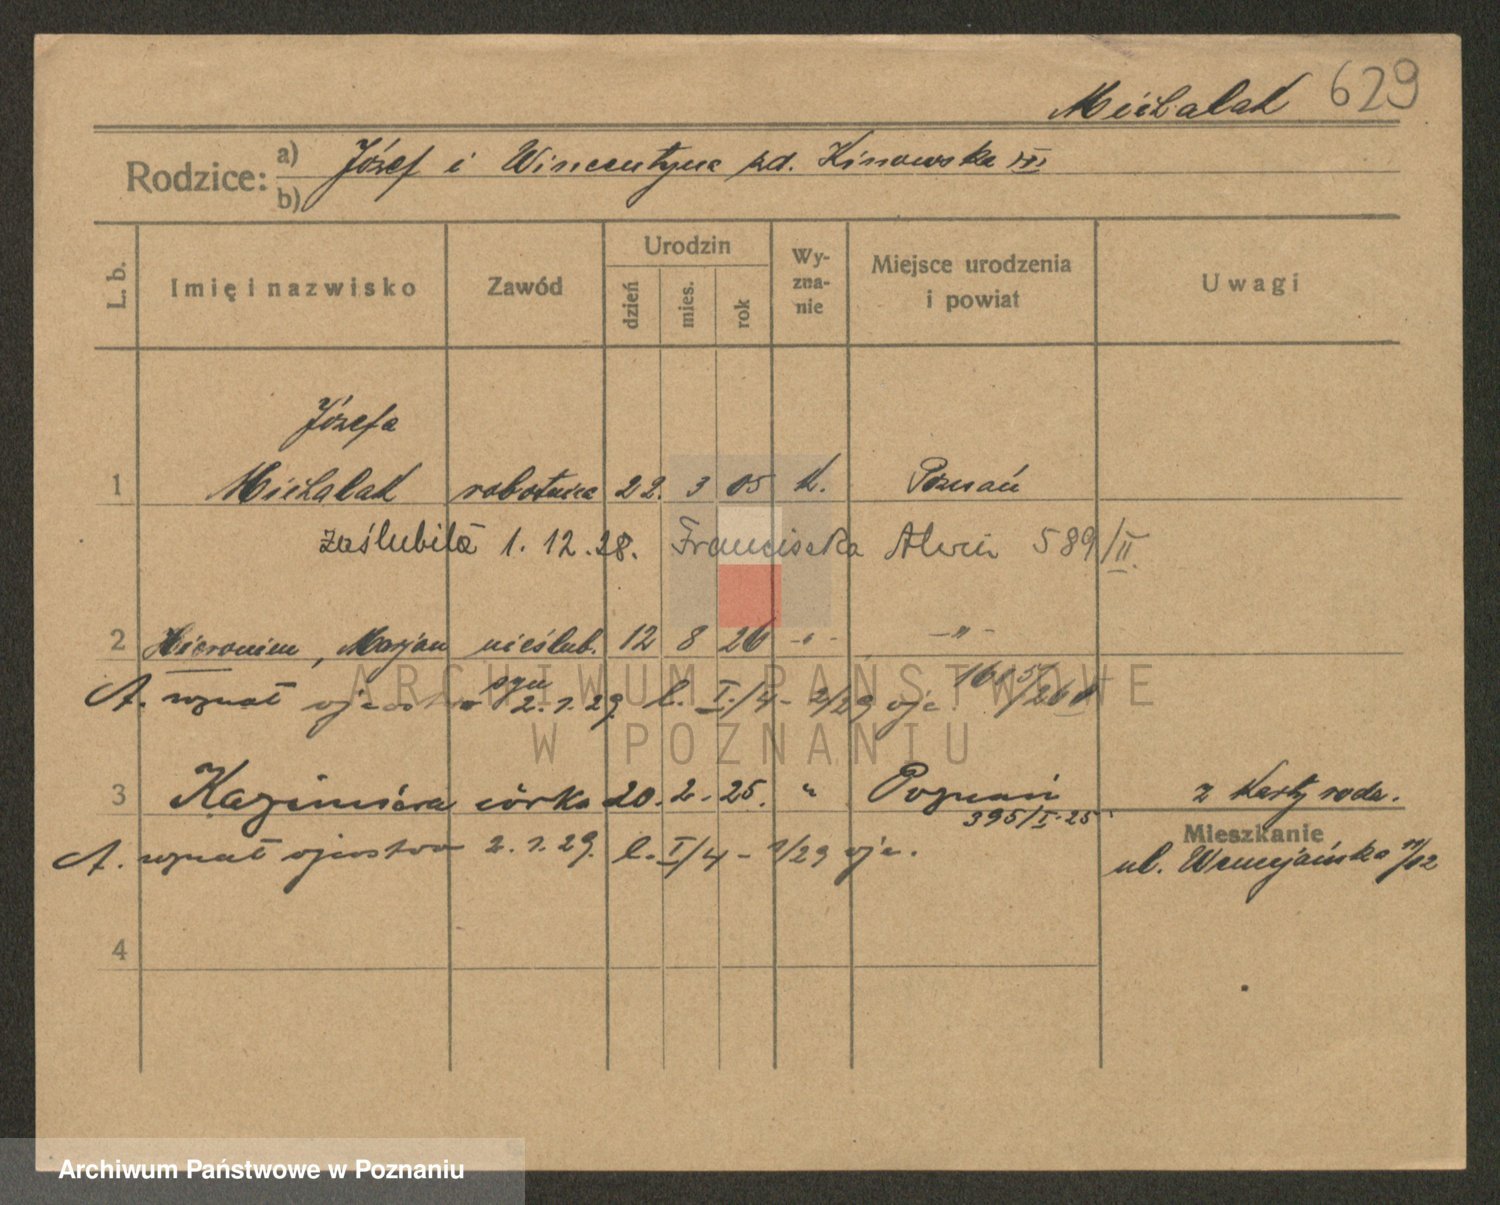 Michalak 629
Rodzice: a) Józef i Wincentyna zd. Kinowska
b)
L. b. Imię i nazwisko Zawód Urodzin dzień mies. rok Wyznanie Miejsce urodzenia i powiat Uwagi
Józefa
1 Michalak robotnica 22. 3 05 k. Poznań
zaślubiła 1. 12. 28. Franciszka 589/II
2 Hieronim, Marjan nieślub. 12 8 26 -"- -"-
syn 1605/26
A. uznał ojcostwo 2.1.29. l. I/4 - 2/29 ojc.
3 Kazimiera córka 20. 2. 25. " Poznań z karty rodz.
395/I.25
Mieszkanie
A. uznał ojcostwo 2.1.29. l. I/4 - 1/29 ojc. ul.
4
ARCHIWUM PAŃSTWOWE
W POZNANIU
Archiwum Państwowe w Poznaniu